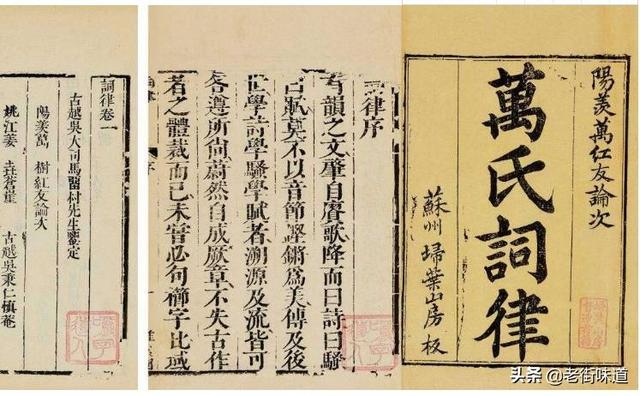 陽羨萬紅友論次
萬氏詞律
蘇州 埽葉山房板
律序
有韻之文肇自賡歌降而曰詩曰騷
曰賦莫不以音節鏗鏘爲美傳及後
世學詩學騷學賦者溯源及流皆可
各遵所尚蔚然自成厥章不失古作
者之體裁而已未嘗必句櫛字比域
詞律卷一
古越吳大司馬畱村先生鑒定
陽羨萬 樹紅友論次
姚江姜 垚蒼崖 古越吳秉仁慎菴
头条 @老街味道